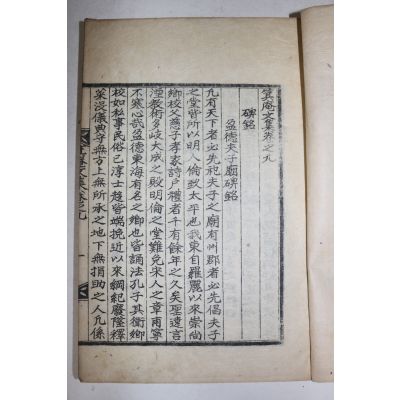 菴文集卷之九
碑銘
盈德夫子廟碑銘
凡有天下者必先祀夫子之廟有州郡者必先倡夫子
之堂皆所以明人倫致太平也我東自羅麗以來崇尚
鄉校父慈子孝家詩戶禮者千有餘年之久矣聖遠言
湮教術多岐大成之殿明倫之堂難免宋人之章甫寧
不寒心哉盈德東海有名之鄉也皆誦法孔子其衛鄉
校如私事民俗已淳士趨皆端挽近以來綱紀廢墜釋
菜浸儀典守無方上無所承之地下無捐助之人凡係
菴文集卷之九